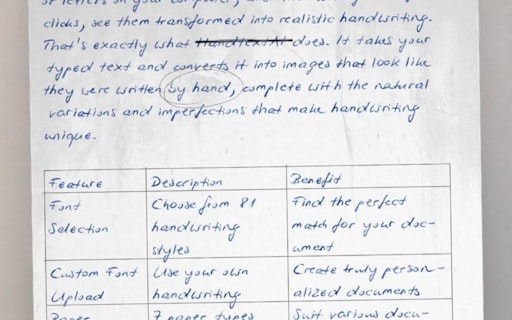 or letters on your computer,
clicks, see them transformed into realistic handwriting.
That's exactly what HandtextAI does. It takes your
typed text and converts it into images that look like
they were written by hand, complete with the natural
variations and imperfections that make handwriting
unique.
Feature Description Benefit
Font Choose from 81 Find the perfect
Selection handwriting match for your doc-
styles ument
Custom Font Use your own Create truly person-
Upload handwriting alized documents
Paper 7 paper types Suit various docu-